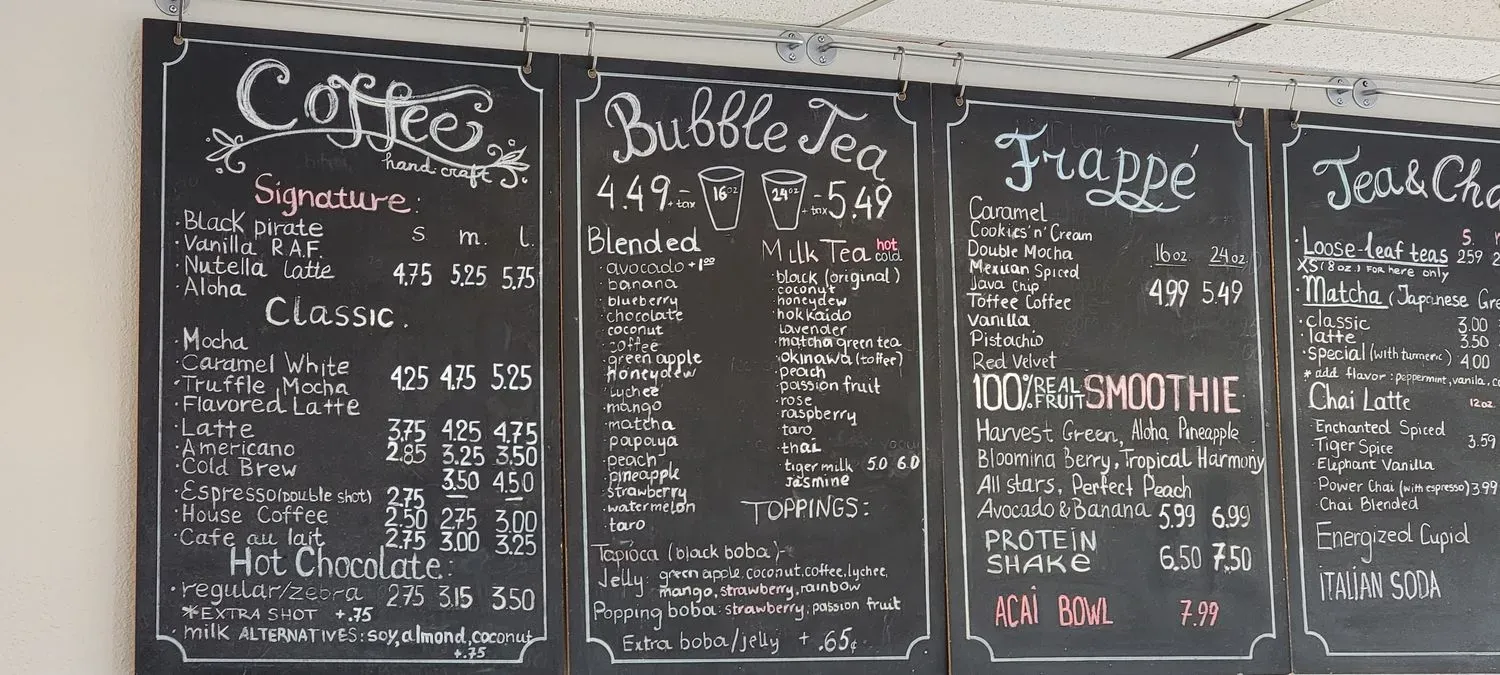 Coffee
hand craft
Signature:
S m. l.
·Black pirate
·Vanilla R.A.F.
·Nutella latte 4.75 5.25 5.75
·Aloha
Classic.
·Mocha
·Caramel White
·Truffle Mocha 4.25 4.75 5.25
·Flavored Latte
·Latte 3.75 4.25 4.75
·Americano 2.85 3.25 3.50
·Cold Brew 3.50 4.50
·Espresso(double shot) 2.75
·House Coffee 2.50 2.75 3.00
·Cafe au lait 2.75 3.00 3.25
Hot Chocolate:
·regular/zebra 2.75 3.15 3.50
*EXTRA SHOT +.75
·milk ALTERNATIVES: soy, almond, coconut
+.75
Bubble Tea
4.49 +tax 16oz 24oz +tax 5.49
Blended
·avocado +1.00
·banana
·blueberry
·chocolate
·coconut
·coffee
·green apple
·honeydew
·lychee
·mango
·matcha
·papaya
·peach
·pineapple
·strawberry
·watermelon
·taro
Milk Tea hot cold
·black (original)
·coconut
·honeydew
·hokkaido
·lavender
·matcha green tea
·okinawa (toffee)
·peach
·passion fruit
·rose
·raspberry
·taro
·thai
·tiger milk 5.0 6.0
·Jasmine
TOPPINGS:
Tapioca (black boba)-
Jelly: green apple, coconut, coffee, lychee,
mango, strawberry, rainbow
Popping boba: strawberry, passion fruit
Extra boba/jelly + .65¢
Frappé
Caramel
Cookies'n'Cream
Double Mocha 16oz. 24oz.
Mexican Spiced
Java Chip 4.99 5.49
Toffee Coffee
Vanilla
Pistachio
Red Velvet
100% REAL FRUIT SMOOTHIE
Harvest Green, Aloha Pineapple
Blooming Berry, Tropical Harmony
All stars, Perfect Peach
Avocado & Banana 5.99 6.99
PROTEIN
SHAKE 6.50 7.50
ACAI BOWL 7.99
Tea & Cha
S.
·Loose-leaf teas 2.59
XS (8oz.) FOR here only
·Matcha (Japanese Gre
·classic 3.00
·latte 3.50
·special (with turmeric) 4.00
*add flavor: peppermint, vanila,
Chai Latte 12oz.
·Enchanted Spiced
·Tiger Spice 3.59
·Elephant Vanilla
·Power Chai (with espresso) 3.99
·Chai Blended
Energized Cupid
ITALIAN SODA